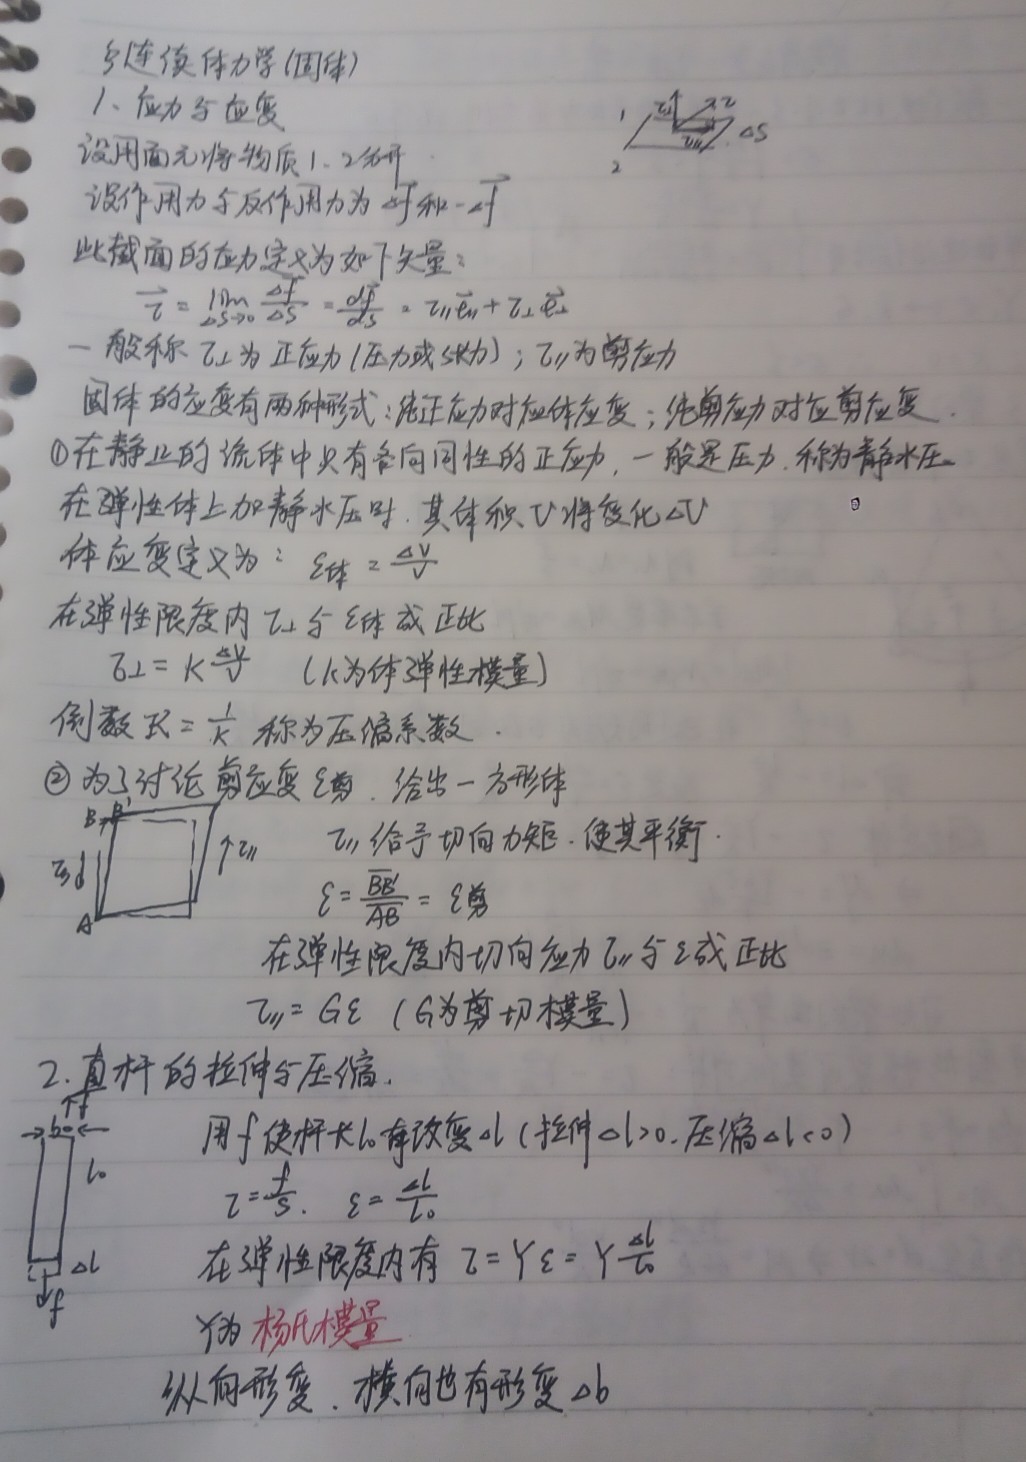 §连续体力学(固体)
1、应力与应变
设用面元将物质1、2分开
设作用力与反作用力为 Δf⃗ 和 -Δf⃗
1 τ⊥ τ ΔS
2 τ∥
此截面的应力定义为如下矢量:
τ⃗ = lim ΔS→0 Δf⃗/ΔS = df⃗/dS = τ∥e⃗∥ + τ⊥e⃗⊥
一般称 τ⊥ 为正应力(压力或张力); τ∥为剪应力
固体的应变有两种形式:纯正应力对应体应变;纯剪应力对应剪应变.
①在静止的流体中只有各向同性的正应力,一般是压力.称为静水压
在弹性体上加静水压时.其体积V将变化ΔV
体应变定义为: ε体 = ΔV/V
在弹性限度内 τ⊥与ε体成正比
τ⊥ = K ΔV/V (K为体弹性模量)
倒数 κ = 1/K 称为压缩系数.
②为了讨论剪应变ε剪.给出一方形体
B B' τ∥
A
τ∥给予切向力矩.使其平衡.
ε = BB'/AB = ε剪
在弹性限度内切向应力τ∥与ε成正比
τ∥ = Gε (G为剪切模量)
2.直杆的拉伸与压缩.
f
b₀
l₀
Δl
f
用f使杆长l₀有改变Δl(拉伸Δl>0.压缩Δl<0)
τ = f/S. ε = Δl/l₀
在弹性限度内有 τ = Yε = Y Δl/l₀
Y为杨氏模量
纵向形变.横向也有形变Δb